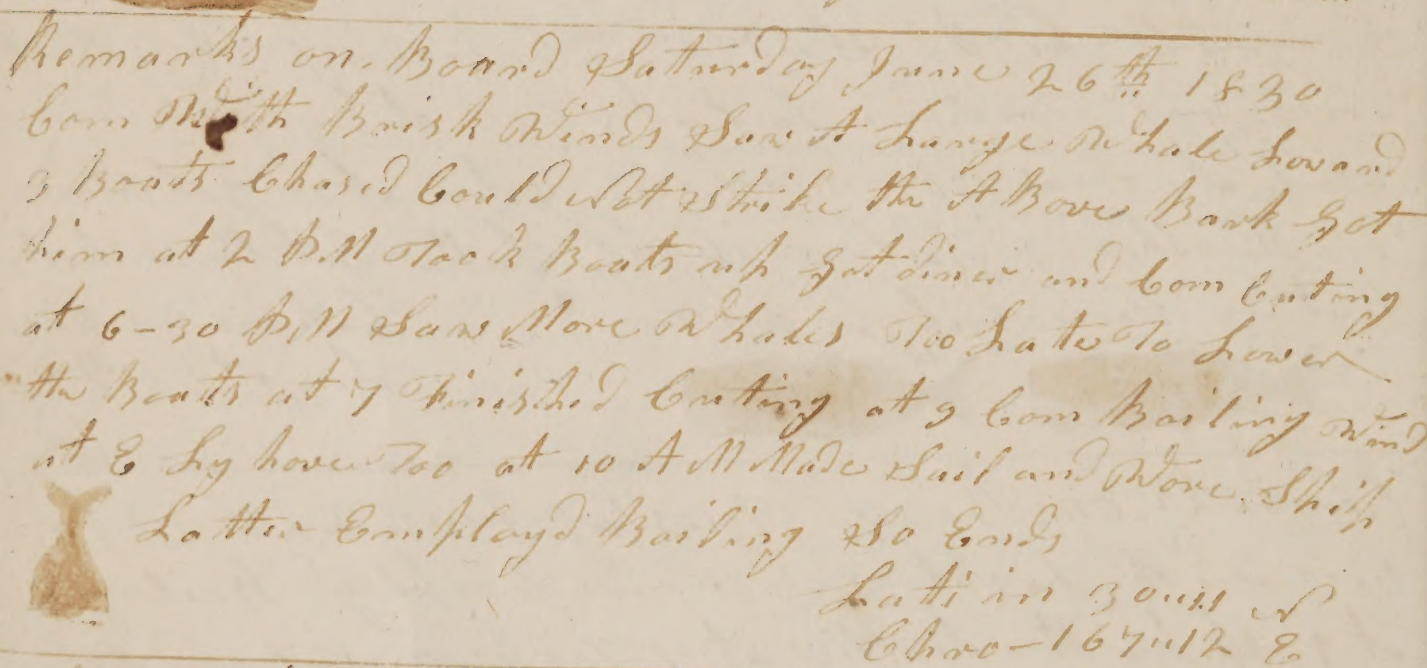 Remarks on Board Saturday June 26th 1830
Com With Brisk Winds Saw A Large Whale Loward
3 Boats Chased Could Not Strike the A Bove Bark Got
him at 2 P,M Took Boats up Got diner and Com Cuting
at 6-30 P,M Saw More Whales Too Late To Lower
the Boats at 7 Finished Cuting at 9 Com Boiling Wind
at E Ly hove Too at 10 A M Made Sail and Wore Ship
Latter Employd Boiling So Ends
Lati in 30"11 N
Chro-167"12 E